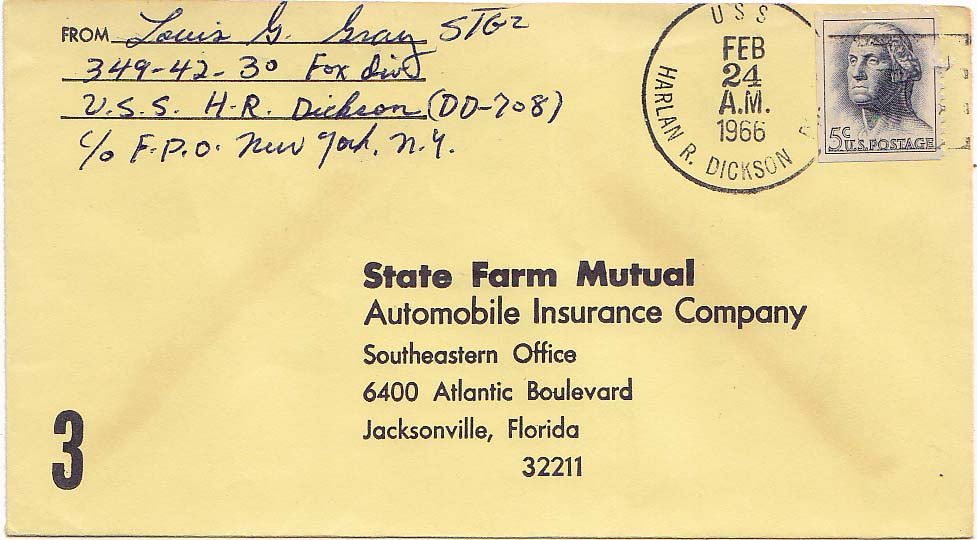 FROM Louis G. Gray STG2
349-42-30 Fox div
U.S.S. H.R. Dickson (DD-708)
c/o F.P.O. New York, N.Y.
USS
HARLAN R. DICKSON
FEB
24
A.M.
1966
5¢ U.S. POSTAGE
State Farm Mutual
Automobile Insurance Company
Southeastern Office
6400 Atlantic Boulevard
Jacksonville, Florida
32211
3